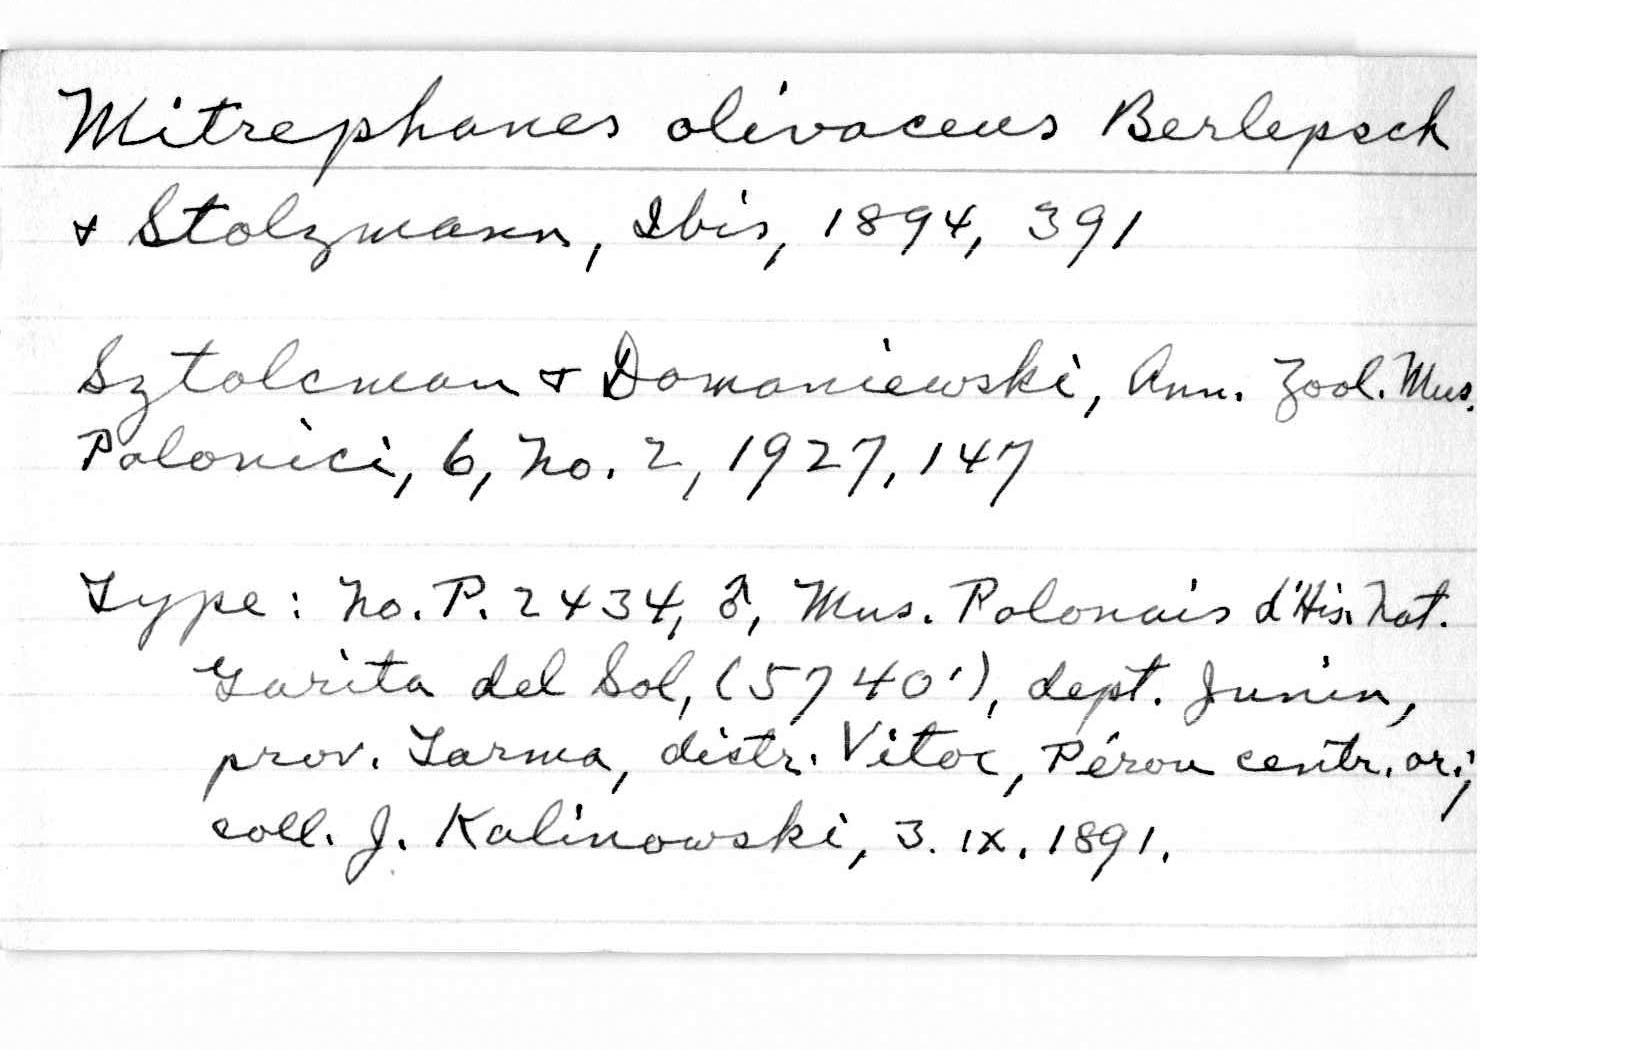 Mitrephanes olivaceus Berlepsch
& Stolzmann, Ibis, 1894, 391
Sztolcman & Domaniewski, Ann. Zool. Mus.
Polonici, 6, No. 2, 1927, 147
Type: No. P. 2434, ♂, Mus. Polonais d'His. Nat.
Garita del Sol, (5740'), dept. Junin,
prov. Tarma, distr. Vitoc, Pérou centr. or.;
coll. J. Kalinowski, 3. IX. 1891.